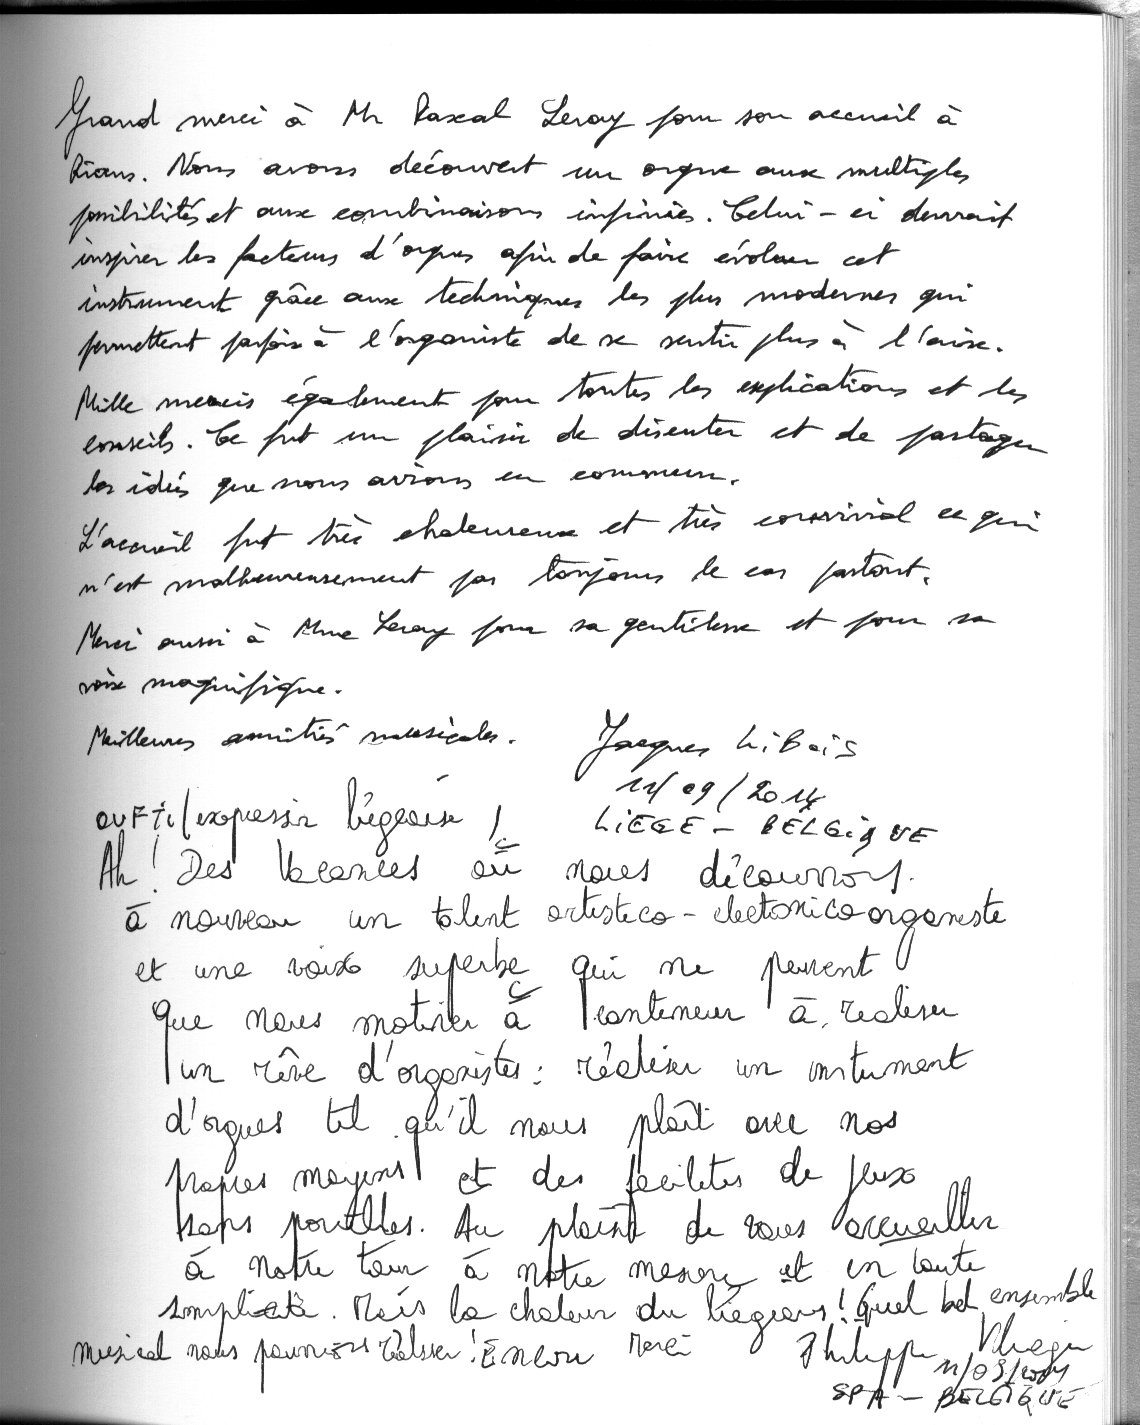 Grand merci à Mr Pascal Leroy pour son accueil à
Rians. Nous avons découvert un orgue aux multiples
possibilités et aux combinaisons infinies. Celui-ci devrait
inspirer les facteurs d'orgues afin de faire évoluer cet
instrument grâce aux techniques les plus modernes qui
permettent parfois à l'organiste de se sentir plus à l'aise.
Mille mercis également pour toutes les explications et les
conseils. Ce fut un plaisir de discuter et de partager
les idées que nous avions en commun.
L'accueil fut très chaleureux et très convivial ce qui
n'est malheureusement pas toujours le cas partout.
Merci aussi à Mme Leroy pour sa gentillesse et pour sa
voix magnifique.
Meilleures amitiés musicales.
Jacques LiBois
11/09/2014
LiEGE - BELGiQUE
OUFTi (expression liégeoise)
Ah! Des Vacances où nous découvrons
à nouveau un talent artistico-electronico organiste
et une voix superbe qui ne peuvent
que nous motiver à continuer à réaliser
un rêve d'organistes: réaliser un instrument
d'orgues tel qu'il nous plaît avec nos
propres moyens et des facilités de jeux
sans pareilles. Au plaisir de vous accueillir
à notre tour à notre mesure et en toute
simplicité. Mais la chaleur du liégeois! Quel bel ensemble
musical nous pourrions réaliser! Encore Merci
Philippe
SPA - BELGIQUE